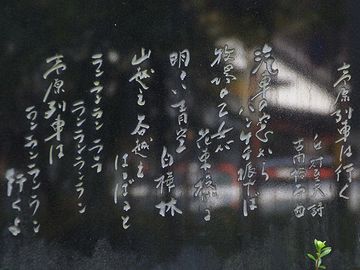 高原列車は行く
丘灯至夫 詩
古関裕而 曲
汽車の窓から
ハンケチ振れば
牧場の乙女が
花束投げる
明るい青空 白樺林
山越え 谷越え
はるばると
ランランラン ララ
ランランランラン
高原列車は
ランランランラン
行くよ